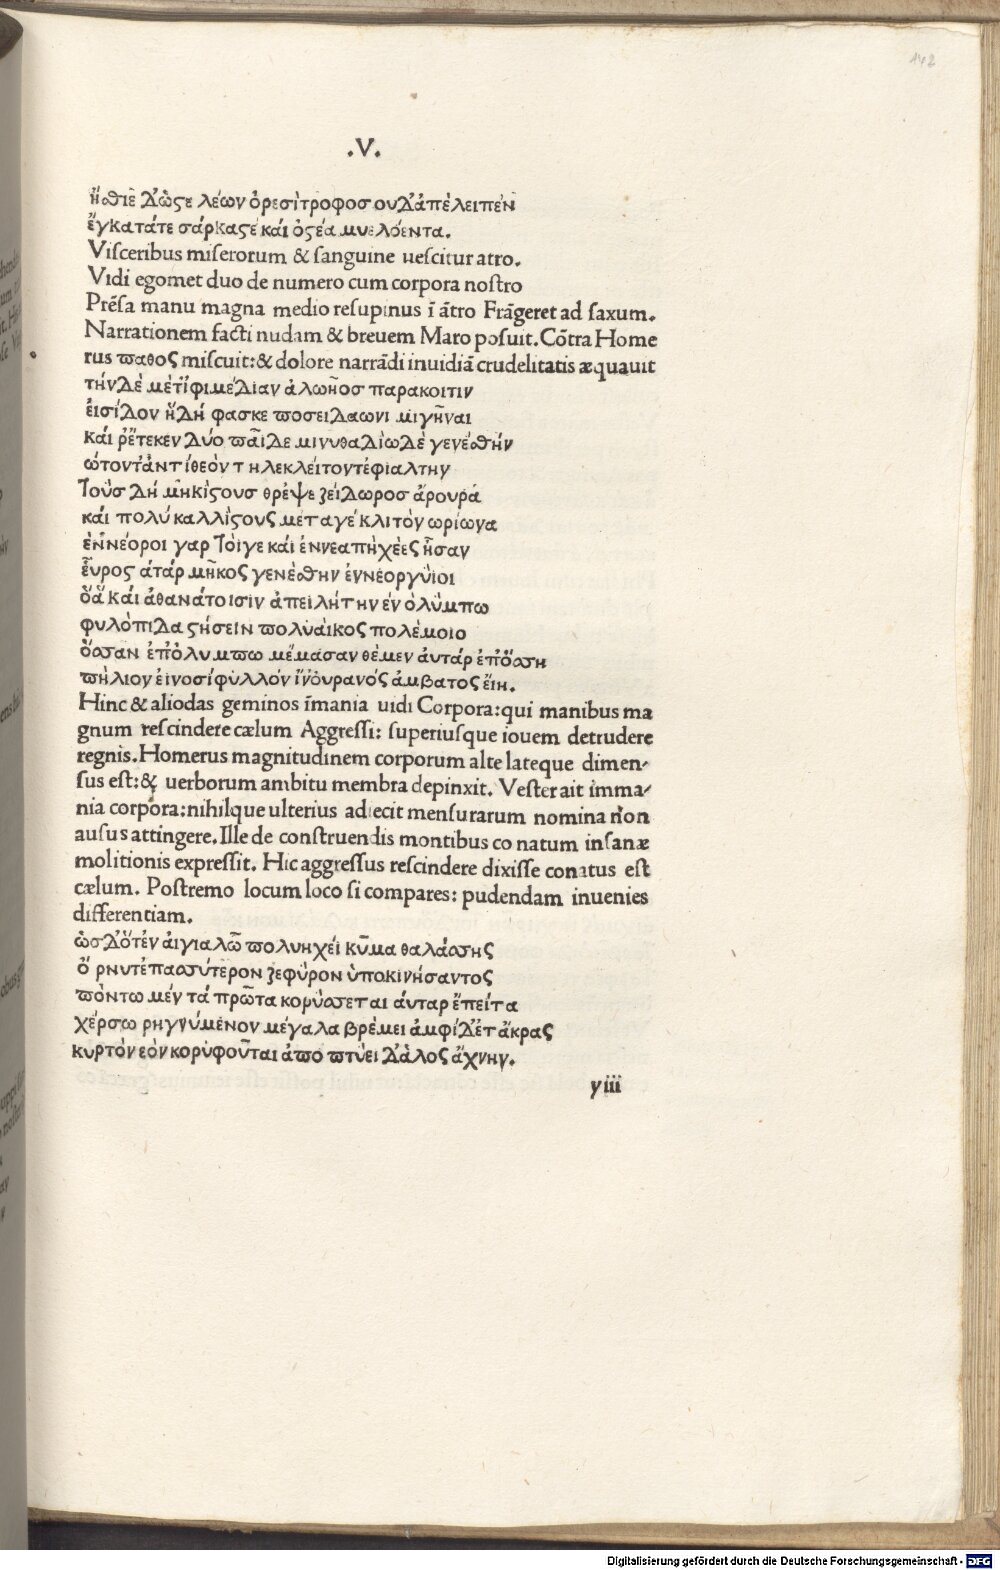 142
.V.
ἤσθιε Δ̓ὼςε λέων ὀρεσὶτροφοσ ουΔ̓ἀπὲλειπεν
ἔγκατάτε σάρκαςέ καί ὀςέα μυελόεντα.
Visceribus miserorum & sanguine uescitur atro.
Vidi egomet duo de numero cum corpora nostro
Prēsa manu magna medio resupinus ī ātro Frāgeret ad saxum.
Narrationem facti nudam & breuem Maro posuit. Cōtra Home
rus παθος miscuit: & dolore narrādi inuidiā crudelitatis æquauit
τήνΔὲ μὲτἴφιμέΔιαν ἀλωῆοσ παρακοιτιν
ἐισίΔον ἤΔή φασκε ποσειΔαωνι μιγῆναι
κάι ῥἔτεκεν Δύο παῖΔε μινυθαΔίωΔὲ γενέσθήν
ὠτοντἀντίθεὸν τηλεκλείτοντέφιαλτην
Τοὺσ Δή μηκίςουσ θρέψε ζείΔωροσ ἄρουρά
κάι πολύ καλλίςους μέταγέ κλιτὸν ωρίωνα
ἐννέοροι γαρ Τόιγε κάι ἐννεαπήχέες ἦσαν
ἔυρος ἀτάρ μῆκος γενέσθην ἐννέοργύιοι
ὅἅ κάι ἀθανάτοισιν ἀπειλήτην ἐν ὀλύμπω
φυλόπιΔα ςήσειν πολυάικος πολέμοιο
ὄσσαν ἐπὀλυμπω μέμασαν θέμεν ἀυτάρ ἐπὄσση
πήλιον ἐινοσίφυλλόν ἵν̓όυρανός ἀμβατος ἔιη.
Hinc & aliodas geminos īmania uidi Corpora: qui manibus ma
gnum rescindere cælum Aggressi: superiusque iouem detrudere
regnis. Homerus magnitudinem corporum alte lateque dimen-
sus est: & uerborum ambitu membra depinxit. Vester ait imma-
nia corpora: nihilque ulterius adiecit mensurarum nomina non
ausus attingere. Ille de construendis montibus co natum insanæ
molitionis expressit. Hic aggressus rescindere dixisse conatus est
cælum. Postremo locum loco si compares: pudendam inuenies
differentiam.
ὡσ Δ̓ὅτἐν ἀιγιαλῶ πολυηχέι κῦμα θαλάσσης
ὄ ρνυτἐπασσύτερον ζεφύρον ὑποκινήσαντος
πόντω μέν τά πρῶτα κορύσσεται ἀυταρ ἔπείτα
χέρσω ρηγνύμενον μέγαλα βρέμει ἀμφί Δ̓έτ ἄκρας
κυρτόν εὸν κορυφοῦται ἀπο πτύει Δ̓ἁλος ἄχνην.
yiii
Digitalisierung gefördert durch die Deutsche Forschungsgemeinschaft - DFG